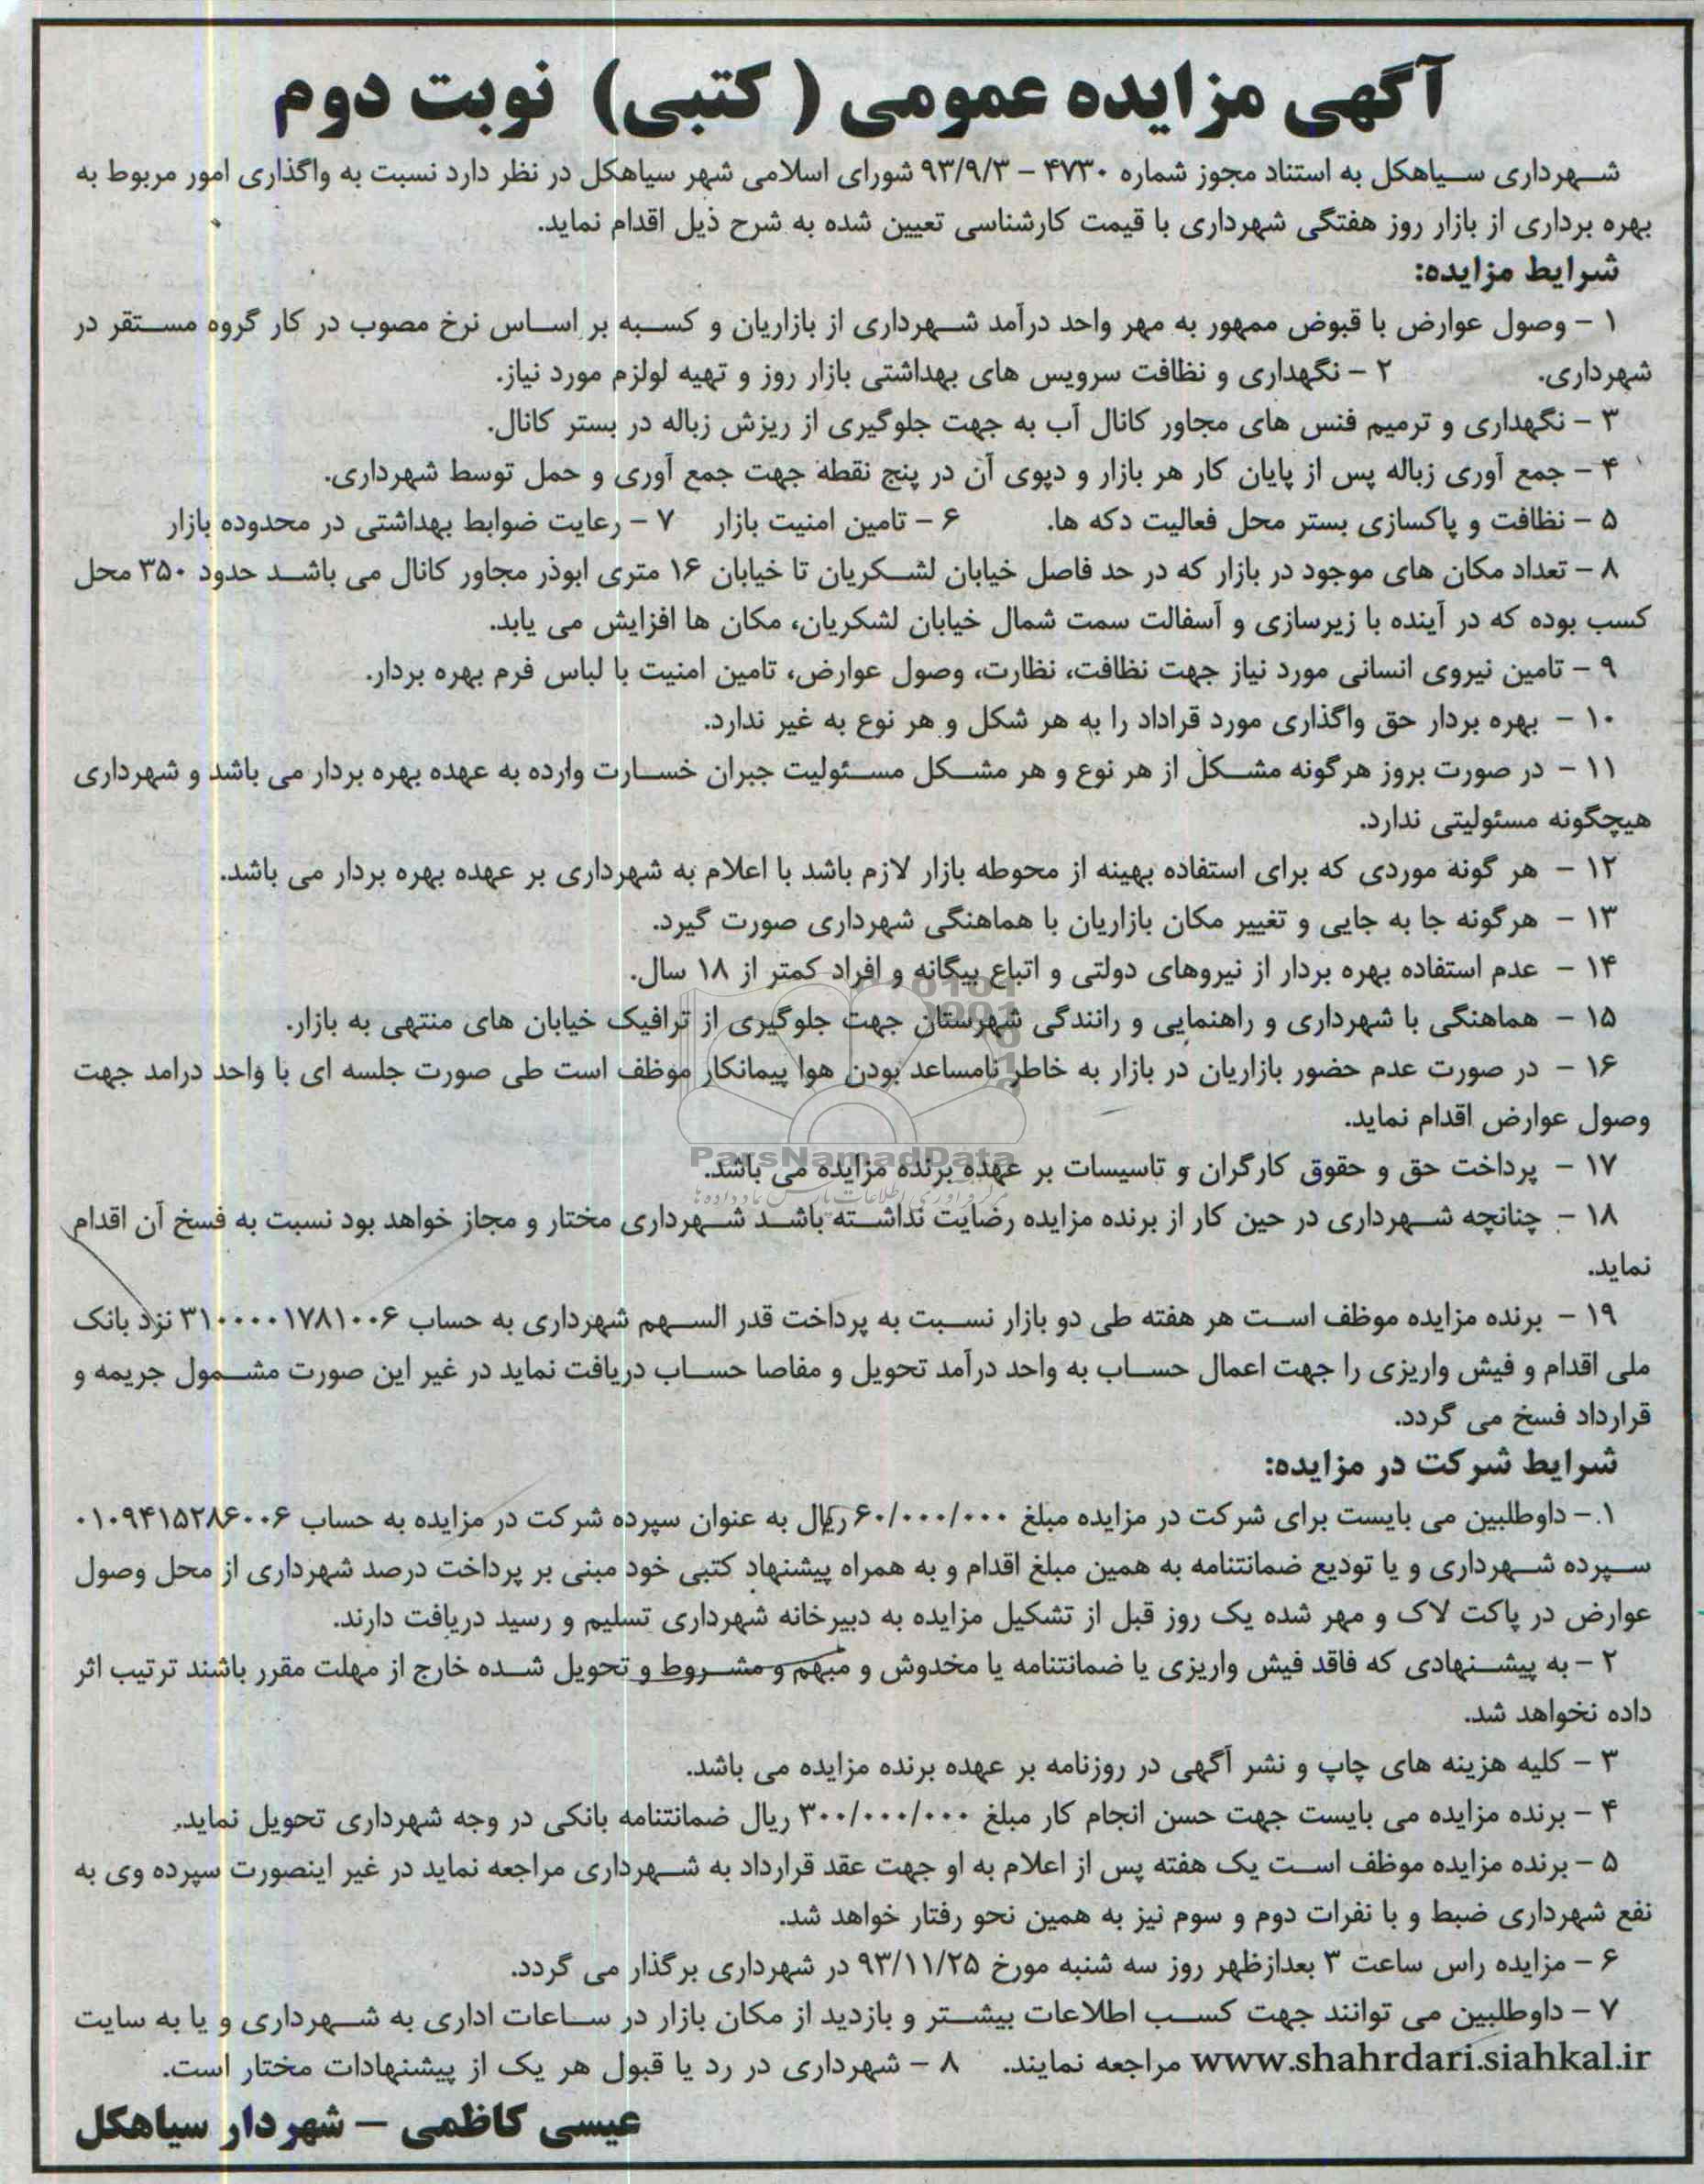 آگهی مزایده عمومی (کتبی) نوبت دوم
شهرداری سیاهکل به استناد مجوز شماره ۴۷۳۰ – ۹۳/۹/۳ شورای اسلامی شهر سیاهکل در نظر دارد نسبت به واگذاری امور مربوط به
بهره برداری از بازار روز هفتگی شهرداری با قیمت کارشناسی تعیین شده به شرح ذیل اقدام نماید.
شرایط مزایده:
۱ – وصول عوارض با قبوض ممهور به مهر واحد درآمد شهرداری از بازاریان و کسبه بر اساس نرخ مصوب در کار گروه مستقر در
شهرداری. ۲ – نگهداری و نظافت سرویس های بهداشتی بازار روز و تهیه لولزم مورد نیاز.
۳ – نگهداری و ترمیم فنس های مجاور کانال آب به جهت جلوگیری از ریزش زباله در بستر کانال.
۴ – جمع آوری زباله پس از پایان کار هر بازار و دپوی آن در پنج نقطه جهت جمع آوری و حمل توسط شهرداری.
۵ – نظافت و پاکسازی بستر محل فعالیت دکه ها. ۶ – تامین امنیت بازار ۷ – رعایت ضوابط بهداشتی در محدوده بازار
۸ – تعداد مکان های موجود در بازار که در حد فاصل خیابان لشکریان تا خیابان ۱۶ متری ابوذر مجاور کانال می باشد حدود ۳۵۰ محل
کسب بوده که در آینده با زیرسازی و آسفالت سمت شمال خیابان لشکریان، مکان ها افزایش می یابد.
۹ – تامین نیروی انسانی مورد نیاز جهت نظافت، نظارت، وصول عوارض، تامین امنیت با لباس فرم بهره بردار.
۱۰ – بهره بردار حق واگذاری مورد قراداد را به هر شکل و هر نوع به غیر ندارد.
۱۱ – در صورت بروز هرگونه مشکل از هر نوع و هر مشکل مسئولیت جبران خسارت وارده به عهده بهره بردار می باشد و شهرداری
هیچگونه مسئولیتی ندارد.
۱۲ – هر گونه موردی که برای استفاده بهینه از محوطه بازار لازم باشد با اعلام به شهرداری بر عهده بهره بردار می باشد.
۱۳ – هرگونه جا به جایی و تغییر مکان بازاریان با هماهنگی شهرداری صورت گیرد.
۱۴ – عدم استفاده بهره بردار از نیروهای دولتی و اتباع بیگانه و افراد کمتر از ۱۸ سال.
۱۵ – هماهنگی با شهرداری و راهنمایی و رانندگی شهرستان جهت جلوگیری از ترافیک خیابان های منتهی به بازار.
۱۶ – در صورت عدم حضور بازاریان در بازار به خاطر نامساعد بودن هوا پیمانکار موظف است طی صورت جلسه ای با واحد درامد جهت
وصول عوارض اقدام نماید.
۱۷ – پرداخت حق و حقوق کارگران و تاسیسات بر عهده برنده مزایده می باشد.
ParsNamadData
۱۸ – چنانچه شهرداری در حین کار از برنده مزایده رضایت نداشته باشد شهرداری مختار و مجاز خواهد بود نسبت به فسخ آن اقدام
نماید.
۱۹ – برنده مزایده موظف است هر هفته طی دو بازار نسبت به پرداخت قدر السهم شهرداری به حساب ۳۱۰۰۰۰۱۷۸۱۰۰۶ نزد بانک
ملی اقدام و فیش واریزی را جهت اعمال حساب به واحد درآمد تحویل و مفاصا حساب دریافت نماید در غیر این صورت مشمول جریمه و
قرارداد فسخ می گردد.
شرایط شرکت در مزایده:
۱ – داوطلبین می بایست برای شرکت در مزایده مبلغ ۶۰/۰۰۰/۰۰۰ ریال به عنوان سپرده شرکت در مزایده به حساب ۰۱۰۹۴۱۵۲۸۶۰۰۶
سپرده شهرداری و یا تودیع ضمانتنامه به همین مبلغ اقدام و به همراه پیشنهاد کتبی خود مبنی بر پرداخت درصد شهرداری از محل وصول
عوارض در پاکت لاک و مهر شده یک روز قبل از تشکیل مزایده به دبیرخانه شهرداری تسلیم و رسید دریافت دارند.
۲ – به پیشنهادی که فاقد فیش واریزی یا ضمانتنامه یا مخدوش و مبهم و مشروط و تحویل شده خارج از مهلت مقرر باشند ترتیب اثر
داده نخواهد شد.
۳ – کلیه هزینه های چاپ و نشر آگهی در روزنامه بر عهده برنده مزایده می باشد.
۴ – برنده مزایده می بایست جهت حسن انجام کار مبلغ ۳۰۰/۰۰۰/۰۰۰ ریال ضمانتنامه بانکی در وجه شهرداری تحویل نماید.
۵ – برنده مزایده موظف است یک هفته پس از اعلام به او جهت عقد قرارداد به شهرداری مراجعه نماید در غیر اینصورت سپرده وی به
نفع شهرداری ضبط و با نفرات دوم و سوم نیز به همین نحو رفتار خواهد شد.
۶ – مزایده راس ساعت ۳ بعدازظهر روز سه شنبه مورخ ۹۳/۱۱/۲۵ در شهرداری برگذار می گردد.
۷ – داوطلبین می توانند جهت کسب اطلاعات بیشتر و بازدید از مکان بازار در ساعات اداری به شهرداری و یا به سایت
www.shahrdari.siahkal.ir مراجعه نمایند. ۸ – شهرداری در رد یا قبول هر یک از پیشنهادات مختار است.
عیسی کاظمی – شهردار سیاهکل